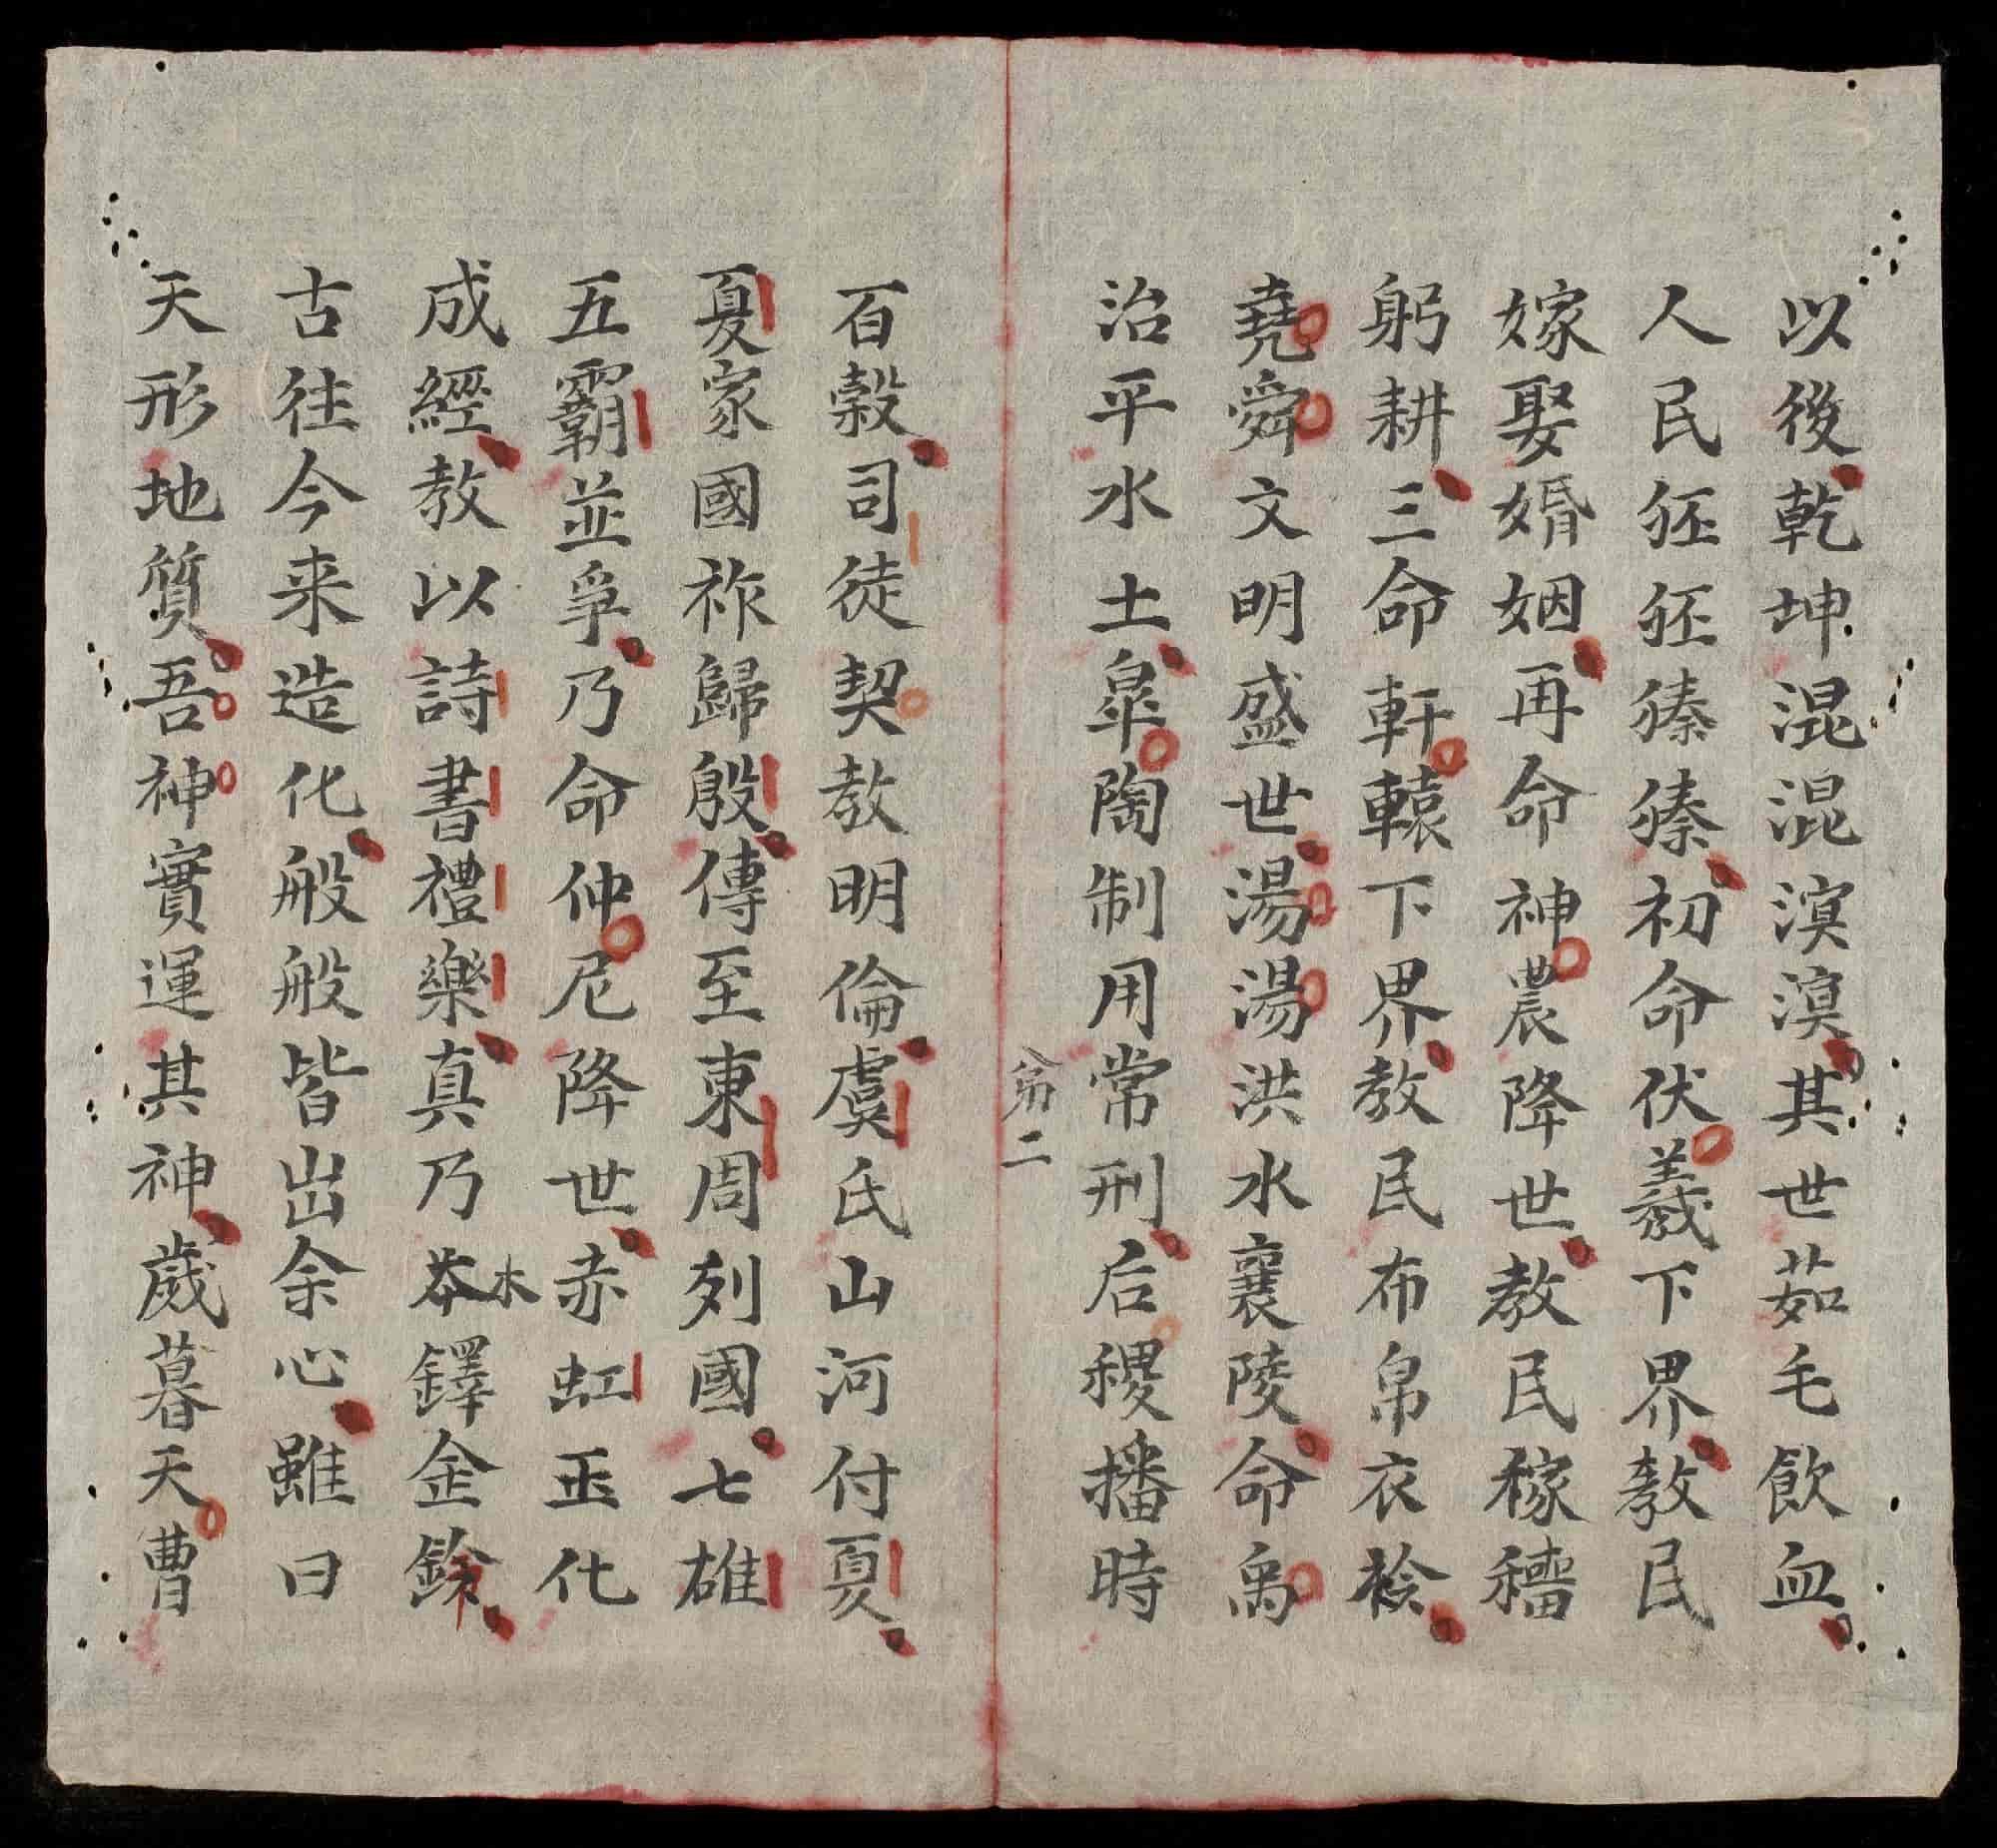 以後乾坤混混溟溟其世茹毛飲血
人民狉狉獉獉初命伏羲下界教民
嫁娶婚姻再命神農降世教民稼穡
躬耕三命軒轅下界教民布帛衣裣
堯舜文明盛世湯湯洪水襄陵命禹
治平水土皐陶制用常刑后稷播時
二
百穀司徒契教明倫虞氏山河付夏
夏家國祚歸殷傳至東周列國七雄
五霸並爭乃命仲尼降世赤虹玉化
成經教以詩書禮樂真乃木鐸金鈴
古往今来造化般般皆出余心雖曰
天形地質吾神實運其神歲暮天曹